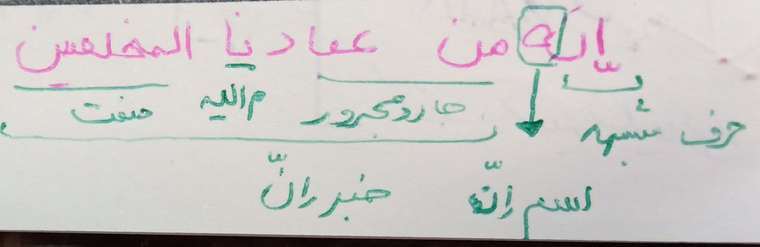 إنّه من عبادنا المخلصين
حرف مشبهه جار و مجرور م الیه صفت
اسم إنّ خبر إنّ